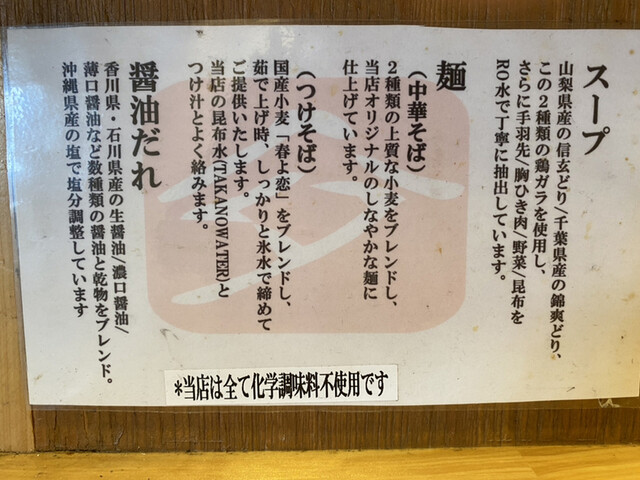 スープ
山梨県産の信玄どり/千葉県産の錦爽どり、
この2種類の鶏ガラを使用し、
さらに手羽先/胸ひき肉/野菜/昆布を
RO水で丁寧に抽出しています。
麺
(中華そば)
2種類の上質な小麦をブレンドし、
当店オリジナルのしなやかな麺に
仕上げています。
(つけそば)
国産小麦「春よ恋」をブレンドし、
茹で上げ時、しっかりと氷水で締めて
ご提供いたします。
当店の昆布水(TAKANOWATER)と
つけ汁とよく絡みます。
醤油だれ
香川県・石川県産の生醤油/濃口醤油/
薄口醤油など数種類の醤油と乾物をブレンド。
沖縄県産の塩で塩分調整しています
*当店は全て化学調味料不使用です